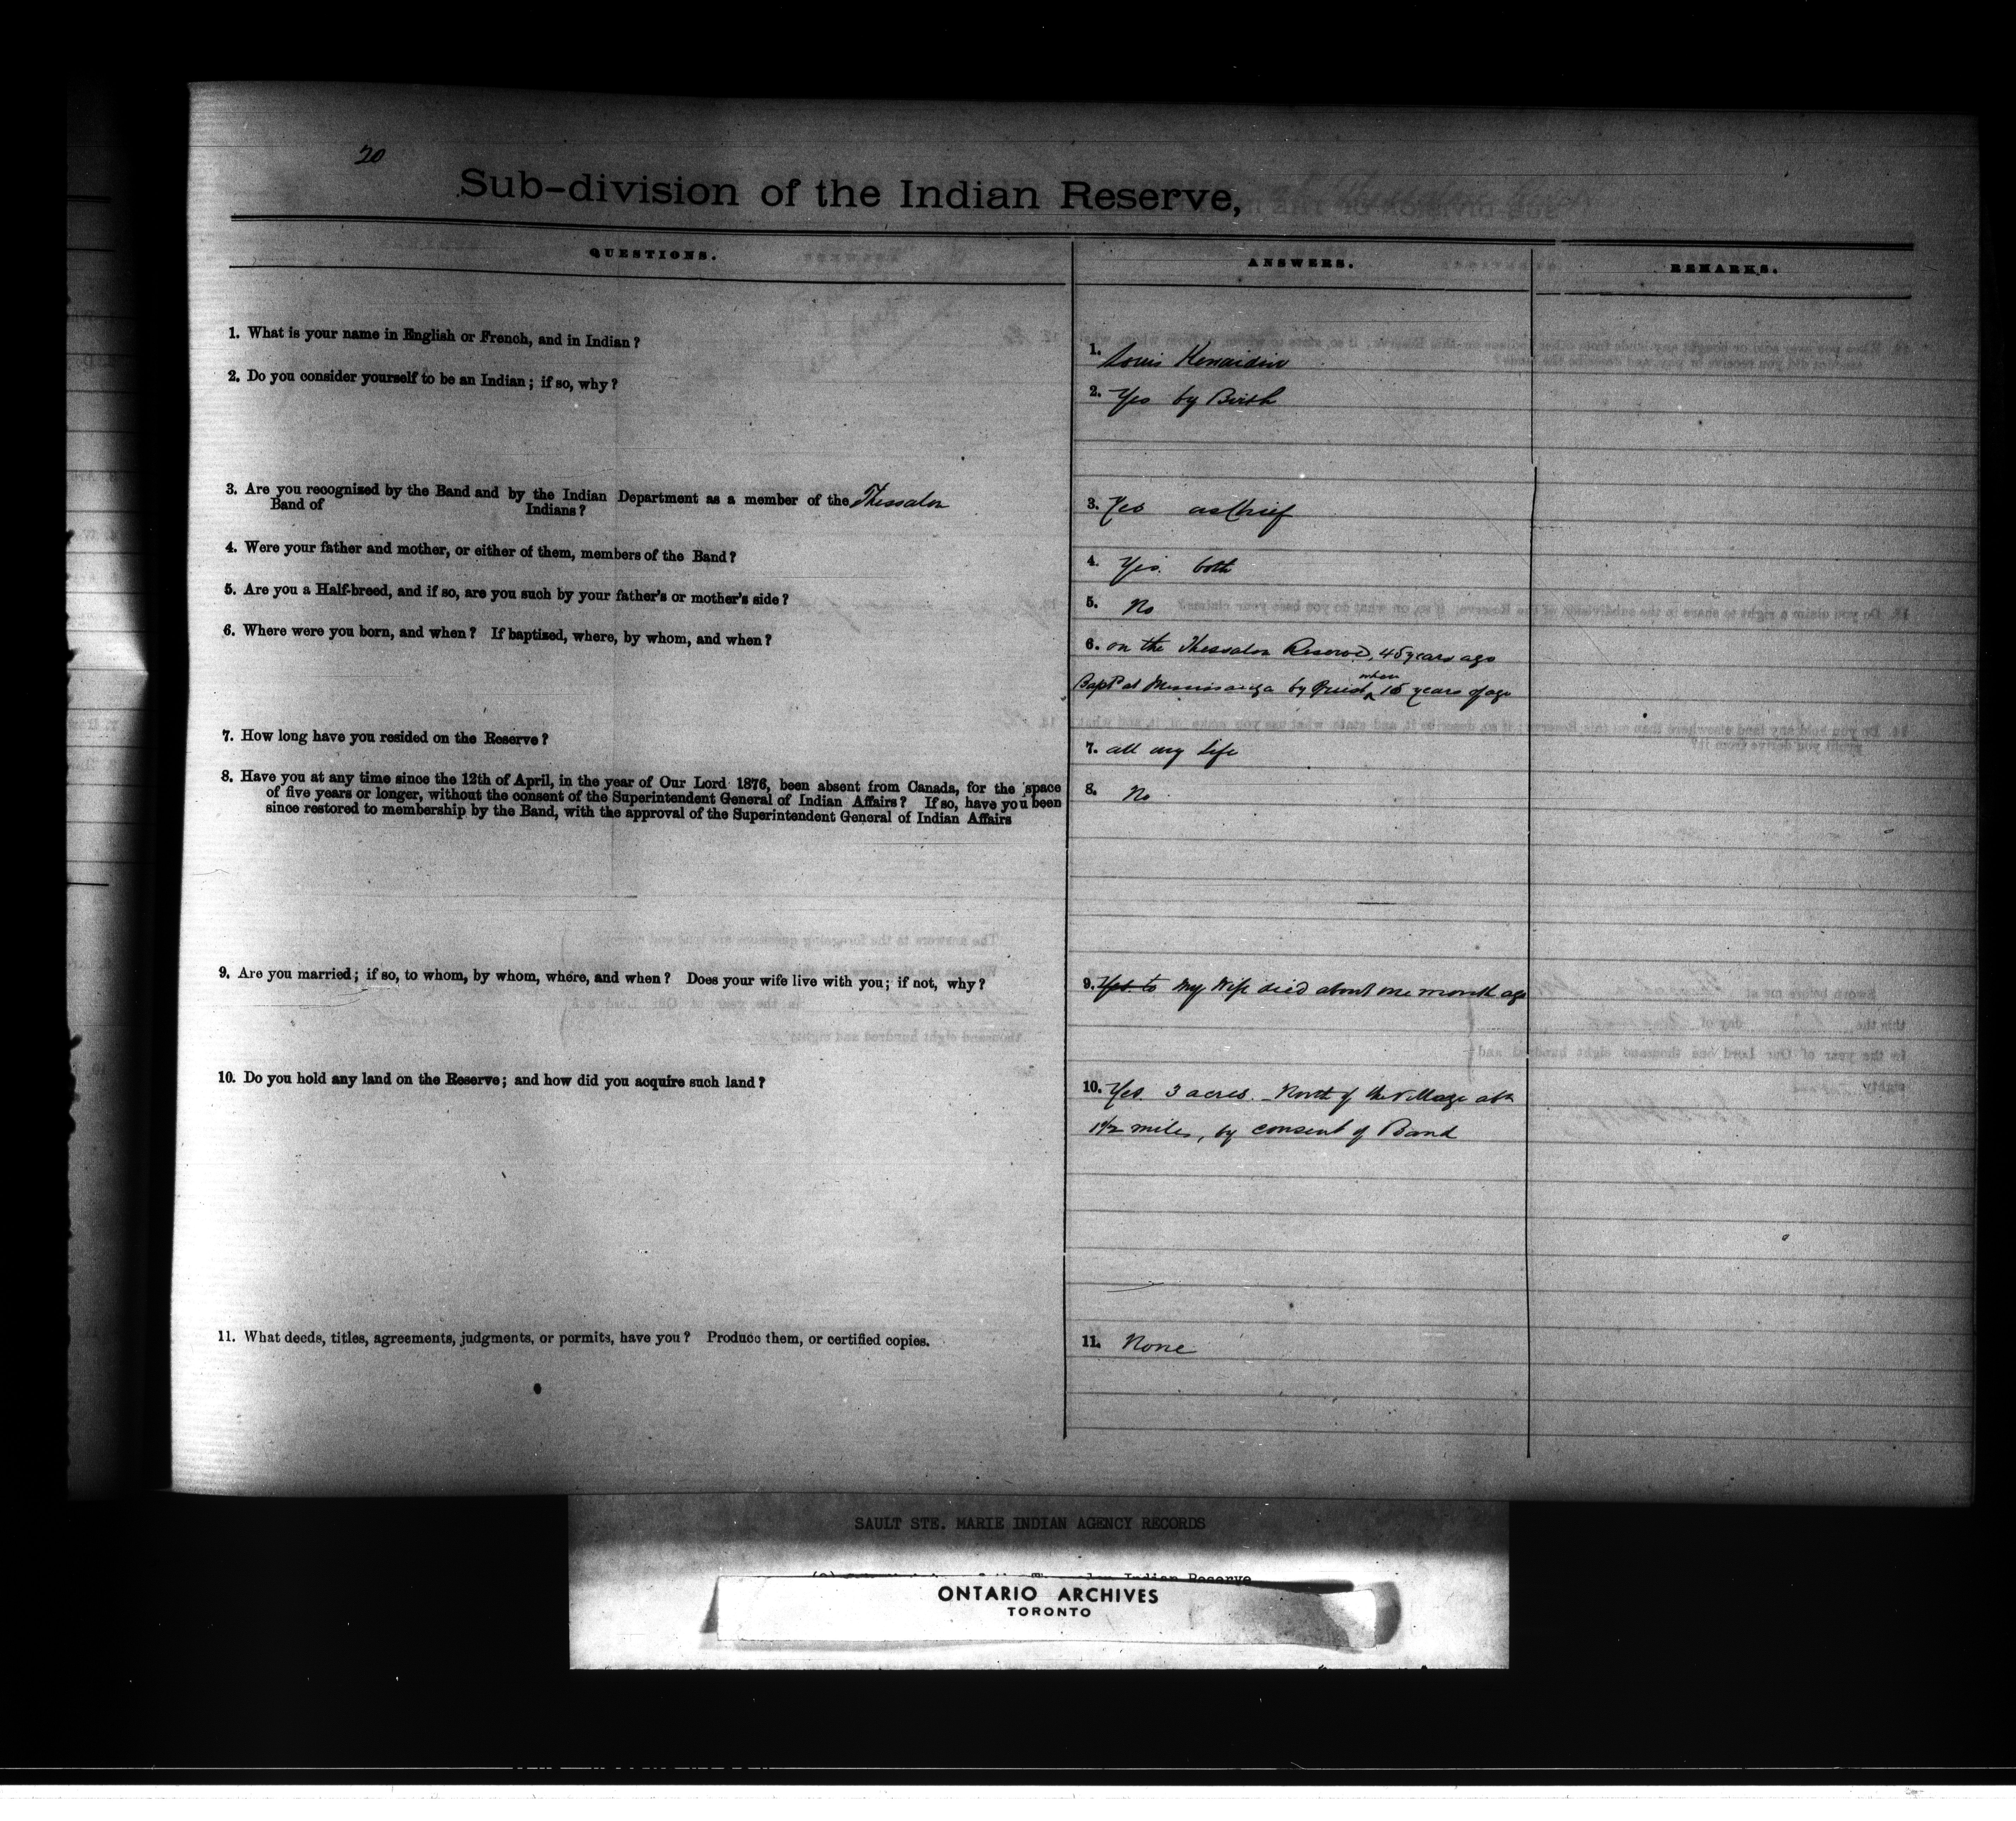 20
Sub-division of the Indian Reserve,
QUESTIONS.
ANSWERS.
REMARKS.
1. What is your name in English or French, and in Indian?
1. Louis
2. Do you consider yourself to be an Indian; if so, why?
2. Yes by Birth
3. Are you recognized by the Band and by the Indian Department as a member of the Thessalon
Band of Indians?
3. Yes as Chief
4. Were your father and mother, or either of them, members of the Band?
4. Yes. both
5. Are you a Half-breed, and if so, are you such by your father's or mother's side?
5. No
6. Where were you born, and when? If baptized, where, by whom, and when?
6. on the Thessalon Reserve, 45 years ago
Bapt at by Priest when 15 years of age
7. How long have you resided on the Reserve?
7. all my life
8. Have you at any time since the 12th of April, in the year of Our Lord 1876, been absent from Canada, for the space
of five years or longer, without the consent of the Superintendent General of Indian Affairs? If so, have you been
since restored to membership by the Band, with the approval of the Superintendent General of Indian Affairs
8. No
9. Are you married; if so, to whom, by whom, where, and when? Does your wife live with you; if not, why?
9. Yes. to My Wife died about one month ago
10. Do you hold any land on the Reserve; and how did you acquire such land?
10. Yes. 3 acres. North of the Village abt
1 1/2 miles, by consent of Band
11. What deeds, titles, agreements, judgments, or permits, have you? Produce them, or certified copies.
11. None
SAULT STE. MARIE INDIAN AGENCY RECORDS
Indian Reserve
ONTARIO ARCHIVES
TORONTO